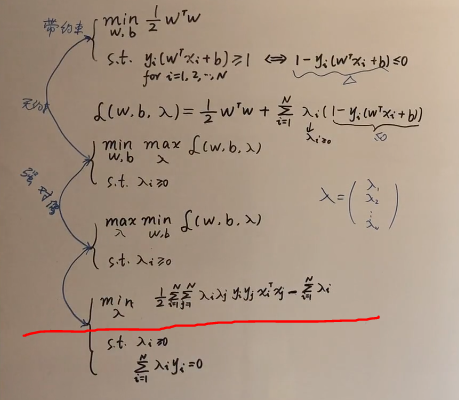 带约束
min 1/2 wᵀw
w,b
s.t. yᵢ(wᵀxᵢ+b)≥1 ⟺ 1-yᵢ(wᵀxᵢ+b)≤0
for i=1,2,⋯,N
△
无约束
ℒ(w,b,λ)=1/2 wᵀw+∑ᵢ₌₁ᴺ λᵢ(1-yᵢ(wᵀxᵢ+b))
λᵢ≥0 ≤0
min max ℒ(w,b,λ)
w,b λ
s.t. λᵢ≥0
λ=(λ₁
λ₂
⋮
λ_N)
强对偶
max min ℒ(w,b,λ)
λ w,b
s.t. λᵢ≥0
min 1/2 ∑ᵢ₌₁ᴺ∑ⱼ₌₁ᴺ λᵢλⱼyᵢyⱼxᵢᵀxⱼ-∑ᵢ₌₁ᴺ λᵢ
λ
s.t. λᵢ≥0
∑ᵢ₌₁ᴺ λᵢyᵢ=0